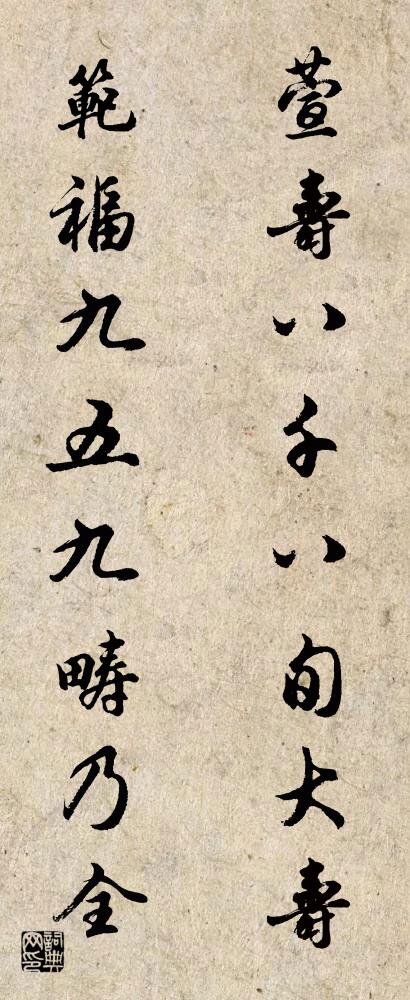 萱壽八千八旬大壽
範福九五九疇乃全
詞典网印